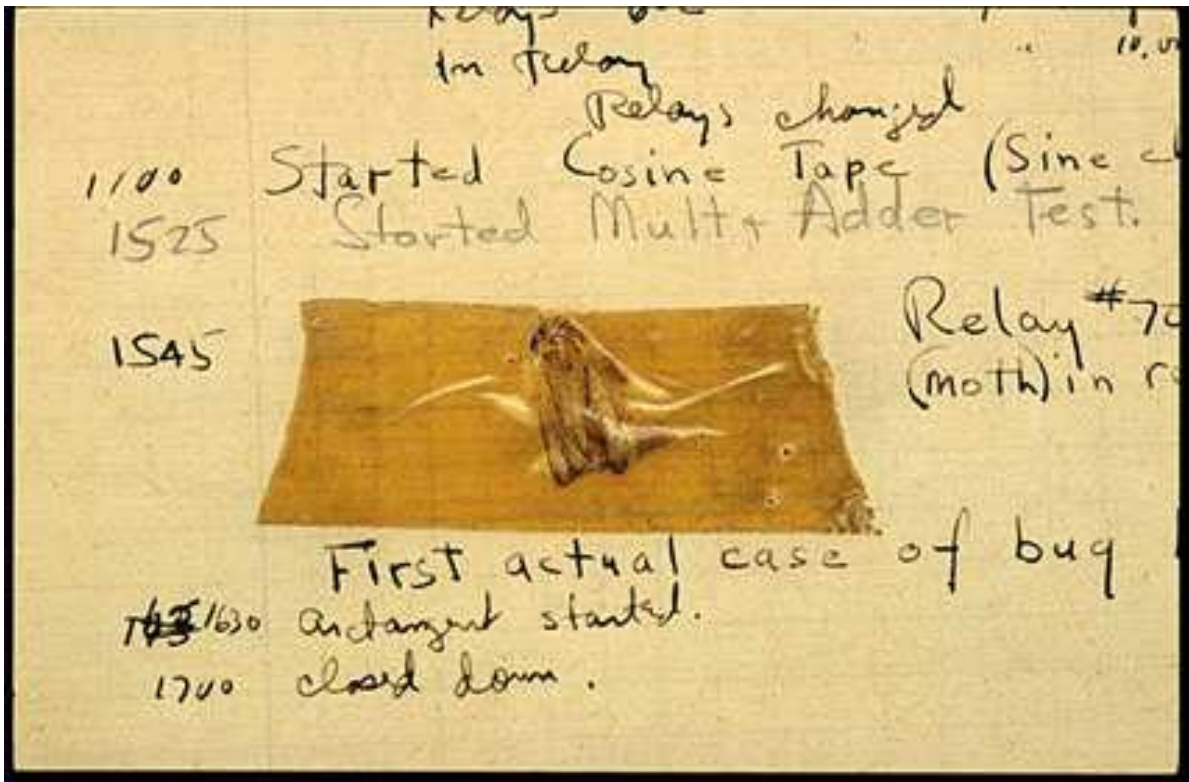 Relays
In Relay
10,00
Relays changed
1100 Started Cosine Tape (Sine
1525 Started Mult + Adder Test.
1545 Relay #70
(moth) in
First actual case of bug
1630 arctangent started.
1700 closed down.